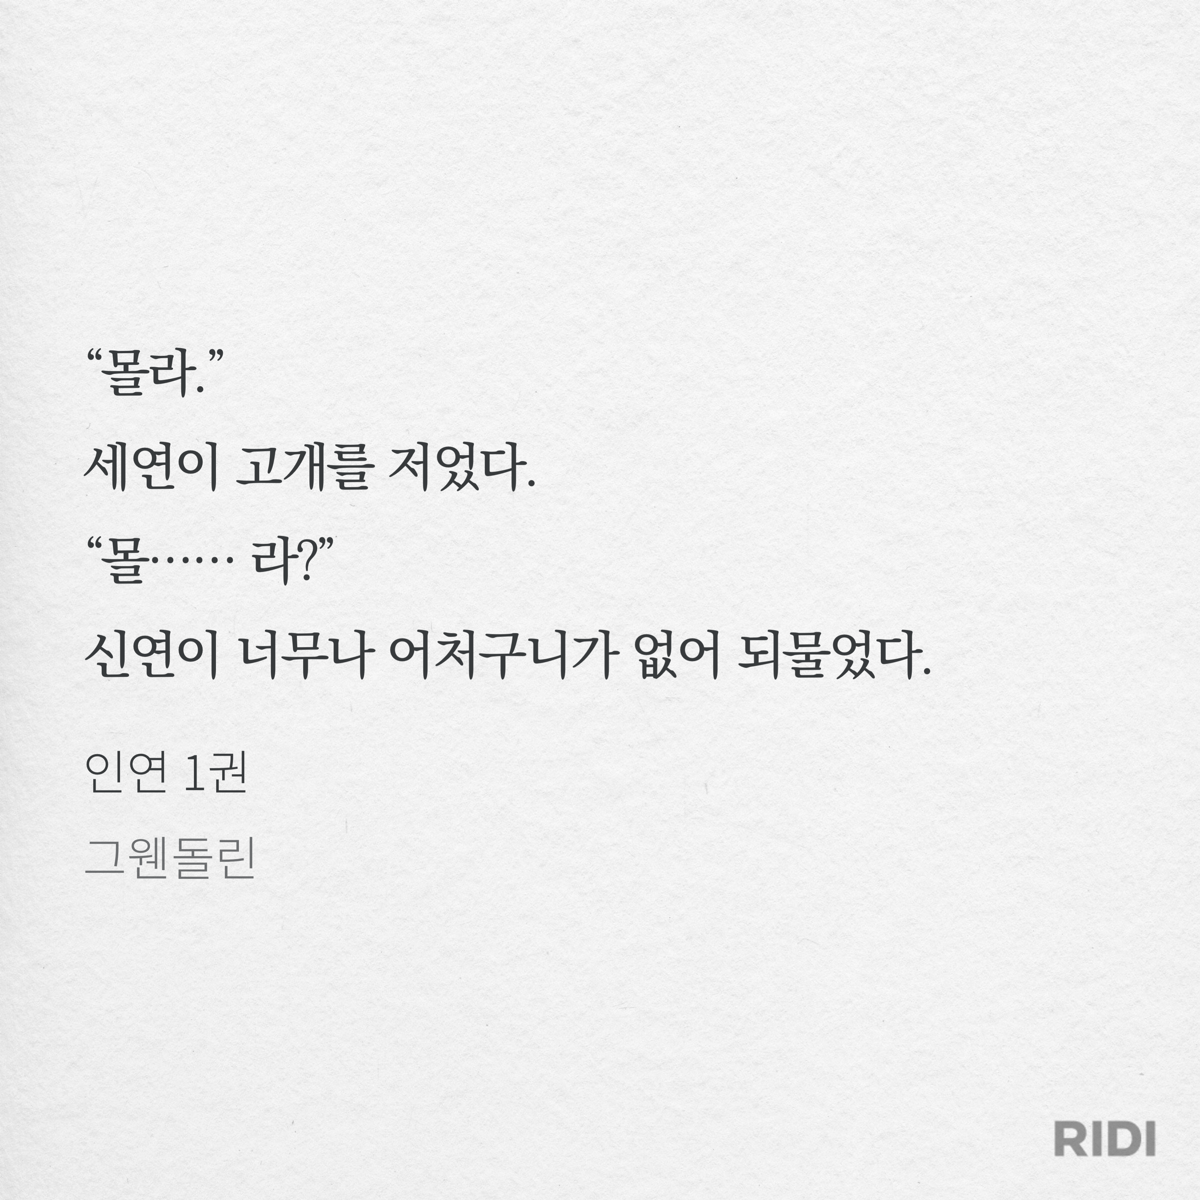 “몰라.”
세연이 고개를 저었다.
“몰…… 라?”
신연이 너무나 어처구니가 없어 되물었다.
인연 1권
그웬돌린
RIDI